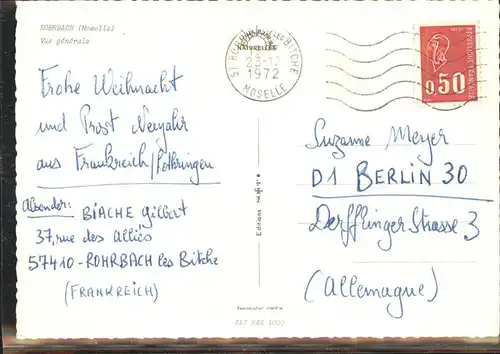 ROHRBACH (Moselle)
Vue générale
Frohe Weihnacht
und Prost Neujahr
aus Frankreich/Lothringen
Absender: BIACHE Gilbert
37, rue des Alliés
57410 - ROHRBACH les Bitche
(FRANKREICH)
NATURELLES
57 ROHRBACH LES BITCHE
23-12
1972
MOSELLE
REPUBLIQUE FRANCAISE
0,50
Suzanne Meyer
D1 BERLIN 30
Derfflinger Strasse 3
(Allemagne)
Editions
Reproduction interdite